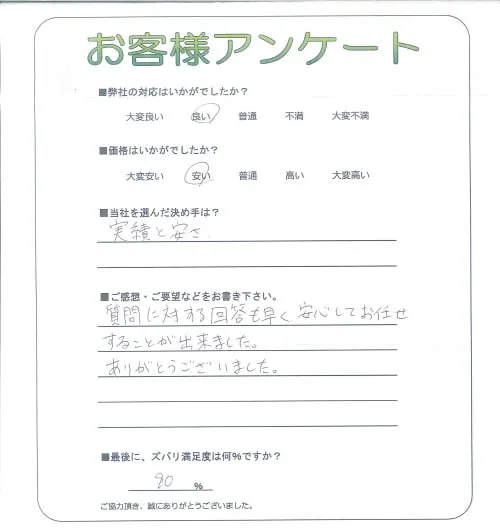 お客様アンケート
■弊社の対応はいかがでしたか?
大変良い 良い 普通 不満 大変不満
■価格はいかがでしたか?
大変安い 安い 普通 高い 大変高い
■当社を選んだ決め手は?
実績と安さ
■ご感想・ご要望などをお書き下さい。
質問に対する回答も早く安心してお任せ
することが出来ました。
ありがとうございました。
■最後に、ズバリ満足度は何%ですか?
%
ご協力頂き、誠にありがとうございました。